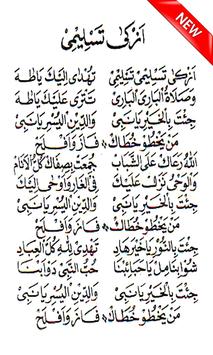 NEW
ازكى تسليمي
ازكى تسليمي تسليمي تهدى اليك يا طه
وصلاة البارى البارى تترى عليك يا طه
جئت بالخير يا نبي والدين اليسر يا نبي
من يخطو خطاك فاز وأفلح
الله رعاك على الشباب جمعت بصفاك كل الأنام
والوحى نزل عليك في الغار واوحى اليك
جئت بالخير يا نبي والدين اليسر يا نبي
من يخطو خطاك فاز وأفلح
جئت بالنور يا خير هاد تهدى لله كل العباد
شوا بنا مل يا حبائبنا حب النبي دوا بنا
جئت بالخير يا نبي والدين اليسر يا نبي
من يخطو خطاك فاز وأفلح